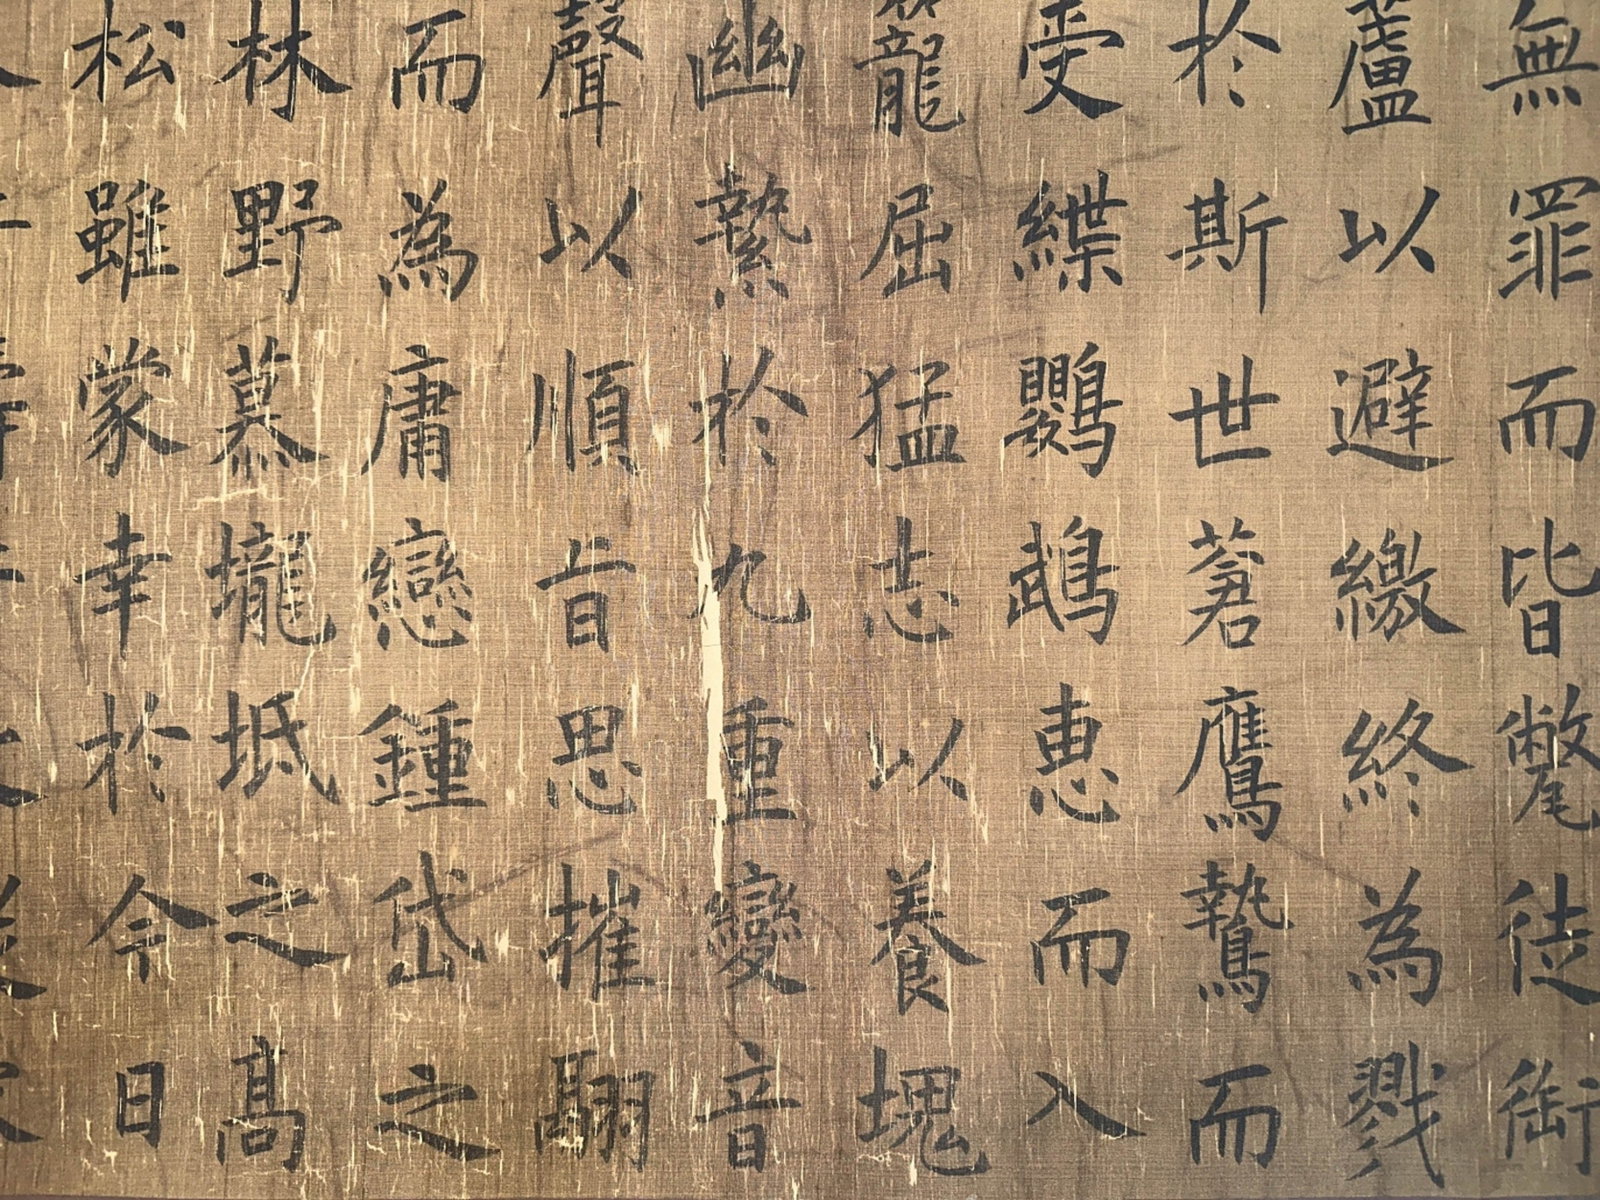 無罪而皆斃徒銜
蘆以避繳終為戮
於斯世蒼鷹鷙而
受緤鸚鵡惠而入
籠屈猛志以養塊
幽縶於九重變音
聲以順旨思摧翮
而為庸戀鍾岱之
林野慕壠坻之高
松雖蒙幸於今日